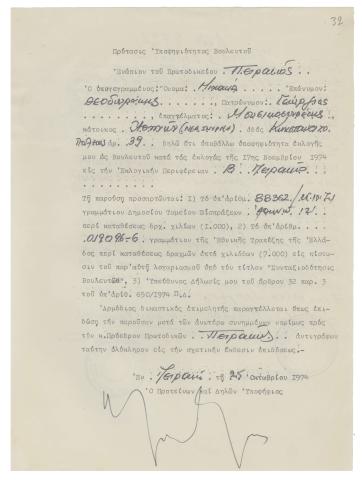 32
Πρότασις Ὑποψηφιότητος Βουλευτοῦ
Ἐνώπιον τοῦ Πρωτοδικείου Πειραιῶς
Ὁ ὑπογεγραμμένος: Ὄνομα: Μιχαήλ Ἐπώνυμον:
Θεοδωράκης Πατρώνυμον: Γεώργιος
ἐπαγγέλματος Μουσικοσυνθέτης
κάτοικος ὁδός
ἀρ. 39. δηλῶ ὅτι ὑποβάλλω ὑποψηφιότητα ἐκλογῆς
μου ὡς Βουλευτοῦ κατά τάς ἐκλογάς τῆς 17ης Νοεμβρίου 1974
εἰς τήν Ἐκλογικήν Περιφέρειαν Β Πειραιῶς
Τῇ παρούσῃ προσαρτῶνται: 1) Τό ὑπ' ἀριθ. 88362/
γραμμάτιον Δημοσίου Ταμείου Εἰσπράξεων
περί καταθέσεως δρχ. χιλίων (1.000), 2) Τό ὑπ' ἀριθμ.
019096-6. γραμμάτιον τῆς Ἐθνικῆς Τραπέζης τῆς Ἑλλά-
δος περί καταθέσεως δραχμῶν ἑπτά χιλιάδων (7.000) εἰς πίστω-
σιν τοῦ παρ' αὐτῇ λογαριασμοῦ ὑπό τόν τίτλον "Συνταξιοδότησις
Βουλευτῶν", 3) Ὑπεύθυνος Δήλωσίς μου τοῦ ἄρθρου 32 παρ. 3
τοῦ ὑπ' ἀριθ. 650/1974 Π.δ.
Ἁρμόδιος δικαστικός ἐπιμελητής παραγγέλλεται ὅπως ἐπι-
δώσῃ τήν παροῦσαν μετά τῶν ἀνωτέρω συνημμένων νομίμως πρός
τόν κ. Πρόεδρον Πρωτοδικῶν Πειραιῶς ἀντιγράφων
ταύτην ὁλόκληρον εἰς τήν σχετικήν ἔκθεσιν ἐπιδόσεως.-
Ἐν Πειραιεῖ τῇ 25 Ὀκτωβρίου 1974
Ὁ Προτείνων καί Δηλῶν Ὑποψήφιος